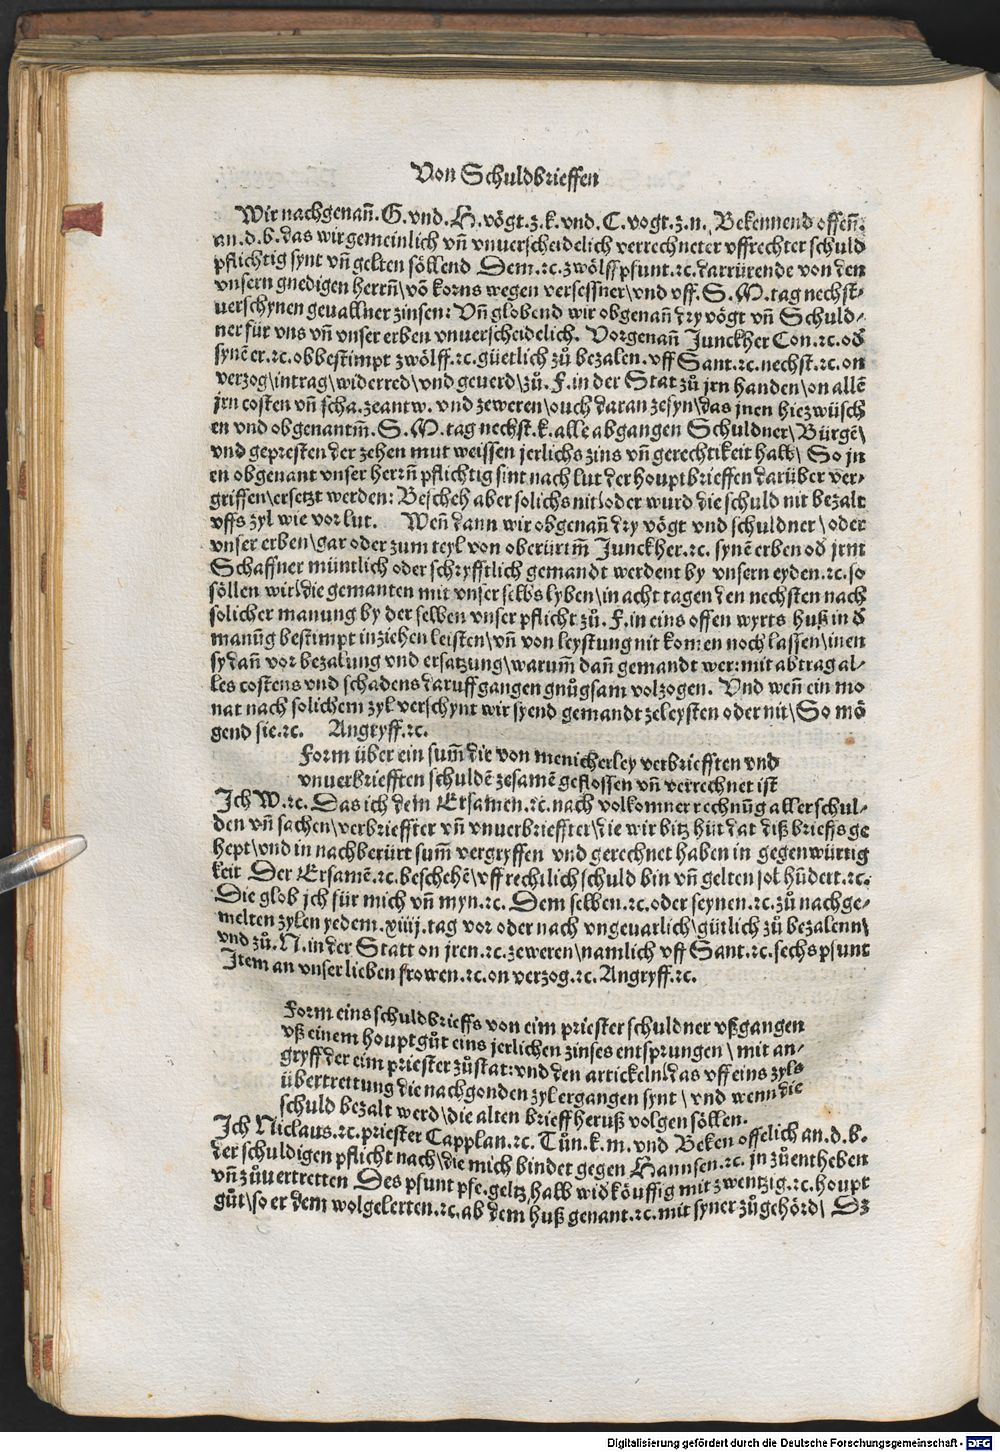 Von Schuldbrieffen
Wir nachgenañ.G.vnd.H.vögt.z.k.vnd.C.vogt.z.n. Bekennend offenn̄.
an.d.b.das wir gemeinlich vn̄ vnuerscheidelich verrechneter vffrechter schuld
pflichtig synt vn̄ gelten söllend Dem.ꝛc.zwölff pfunt.ꝛc.darrürende von den
vnsern gnedigen herrn̄\võ korns wegen versessner\vnd vff.S.M.tag nechst⸗
uerschynen geuallner zinsen: Vn̄ globend wir obgenan̄ dry vögt vn̄ Schuld⸗
ner für vns vn̄ vnser erben vnuerscheidelich. Vorgenan̄ Junckher Con.ꝛc.od
synē er.ꝛc.obbestimpt zwölff.ꝛc.güetlich zů bezalen.vff Sant.ꝛc.nechst.ꝛc.on
verzog\intrag\widerred\vnd geuerd\zů.F.in der Stat zů jrn handen\on allē
jrn costen vn̄ scha.zeantw.vnd zeweren\ouch daran zesyn\das jnen hiezwüsch
en vnd obgenantm̄.S.M.tag nechst.k.alle abgangen Schuldner\Bürgē\
vnd gepresten der zehen mut weissen jerlichs zins vn̄ gerechtikeit halb\ So jn
en obgenant vnser herrn̄ pflichtig sint nach lut der houptbrieffen darüber ver⸗
griffen\ersetzt werden: Bescheh aber solichs nit\oder wurd die schuld nit bezalt
vffs zyl wie vor lut. Wen̄ dann wir obgenan̄ dry vögt vnd schuldner\oder
vnser erben\gar oder zum teyl von oberürtm̄ Junckher.ꝛc. synē erben od jrm
Schaffner müntlich oder schryfftlich gemandt werdent by vnsern eyden.ꝛc.so
söllen wir\die gemanten mit vnser selbs lyben\in acht tagen den nechsten nach
solicher manung by der selben vnser pflicht zů.F.in eins offen wyrts huß in d
manūg bestimpt inziehen leisten\vn̄ von leystung nit komen noch lassen\inen
sy dan̄ vor bezalung vnd ersatzung\warum̄ dan̄ gemandt wer:mit abtrag al⸗
les costens vnd schadens daruff gangen gnůgsam volzogen. Vnd wen̄ ein mo
nat nach solichem zyl verschynt wir syend gemandt zeleysten oder nit\So mö
gend sie.ꝛc. Angryff.ꝛc.
Form über ein sum̄ die von menicherley verbriefften vnd
vnuerbriefften schuldē zesamē geflossen vn̄ verrechnet ist
Ich W.ꝛc. Das ich dem Ersamen.ꝛc.nach volkomner rechnūg aller schul⸗
den vn̄ sachen\verbrieffter vn̄ vnuerbrieffter\die wir bitz hüt dat diß brieffs ge
hept\vnd in nachberürt sum̄ vergryffen vnd gerechnet haben in gegenwürtig
keit Der Ersamē.ꝛc.beschehē\vffrechtlich schuld bin vn̄ gelten sol hūdert.ꝛc.
Die glob jch für mich vn̄ myn.ꝛc. Dem selben.ꝛc.oder seynen.ꝛc.zů nachge⸗
melten zylen yedem.xiiij.tag vor oder nach vngeuarlich\gütlich zů bezalenn\
vnd zů.N.in der Statt on jren.ꝛc.zeweren\namlich vff Sant.ꝛc.sechs pfunt
Item an vnser lieben frowen.ꝛc.on verzog.ꝛc. Angryff.ꝛc.
Form eins schuldbrieffs von eim priester schuldner vßgangen
vß einem houptgůt eins jerlichen zinses entsprungen\mit an⸗
gryff der eim priester zůstat:vnd den artickeln\das vff eins zyls
übertrettung die nachgonden zyl ergangen synt\vnd wenn die
schuld bezalt werd\die alten brieff heruß volgen söllen.
Ich Niclaus.ꝛc.priester Capplan.ꝛc. Tůn.k.m.vnd Beken offelich an.d.b.
der schuldigen pflicht nach\die mich bindet gegen Hannsen.ꝛc.jn zů entheben
vn̄ zů uertretten Des pfunt pfe.geltz halb widköuffig mit zwentzig.ꝛc.houpt
gůt\so er dem wolgelerten.ꝛc.ab dem huß genant.ꝛc.mit syner zůgehörd\ Dz
Digitalisierung gefördert durch die Deutsche Forschungsgemeinschaft - DFG